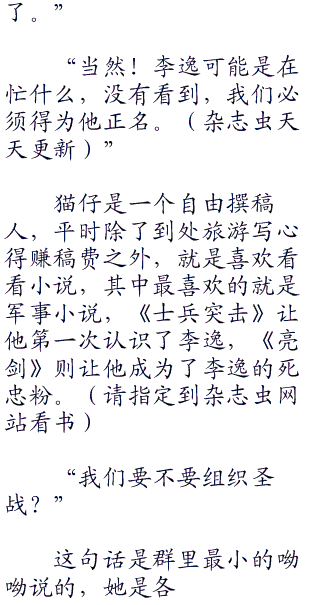 了。”
“当然！李逸可能是在
忙什么，没有看到，我们必
须得为他正名。（杂志虫天
天更新）”
猫仔是一个自由撰稿
人，平时除了到处旅游写心
得赚稿费之外，就是喜欢看
看小说，其中最喜欢的就是
军事小说，《士兵突击》让
他第一次认识了李逸，《亮
剑》则让他成为了李逸的死
忠粉。（请指定到杂志虫网
站看书）
“我们要不要组织圣
战？”
这句话是群里最小的呦
呦说的，她是各